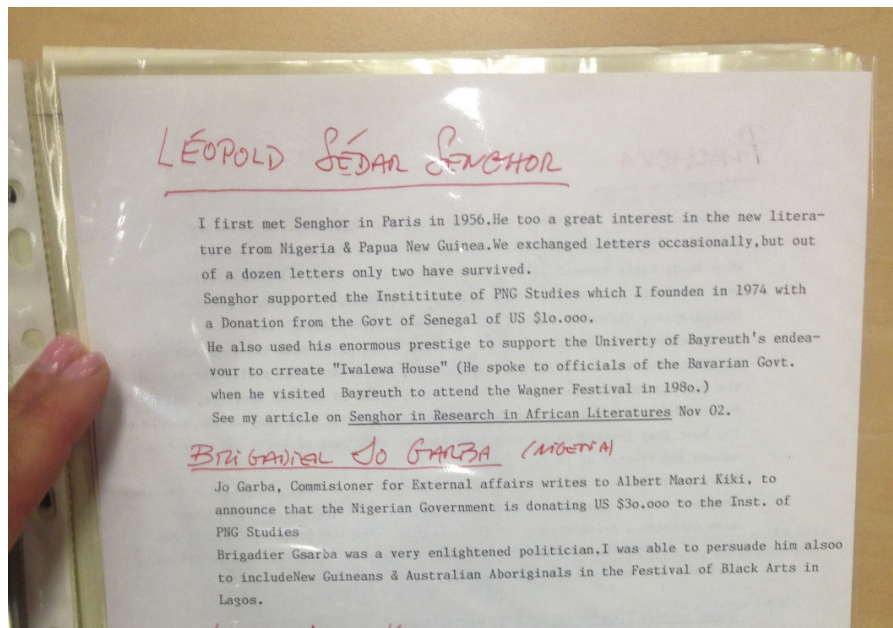 LÉOPOLD SÉDAR SENGHOR
I first met Senghor in Paris in 1956.He too a great interest in the new litera-
ture from Nigeria & Papua New Guinea.We exchanged letters occasionally,but out
of a dozen letters only two have survived.
Senghor supported the Instititute of PNG Studies which I founden in 1974 with
a Donation from the Govt of Senegal of US $1o.ooo.
He also used his enormous prestige to support the Univerty of Bayreuth's endea-
vour to crreate "Iwalewa House" (He spoke to officials of the Bavarian Govt.
when he visited Bayreuth to attend the Wagner Festival in 198o.)
See my article on Senghor in Research in African Literatures Nov 02.
BRIGADIER JO GARBA (NIGERIA)
Jo Garba, Commisioner for External affairs writes to Albert Maori Kiki, to
announce that the Nigerian Government is donating US $3o.ooo to the Inst. of
PNG Studies
Brigadier Gsarba was a very enlightened politician.I was able to persuade him alsoo
to includeNew Guineans & Australian Aboriginals in the Festival of Black Arts in
Lagos.